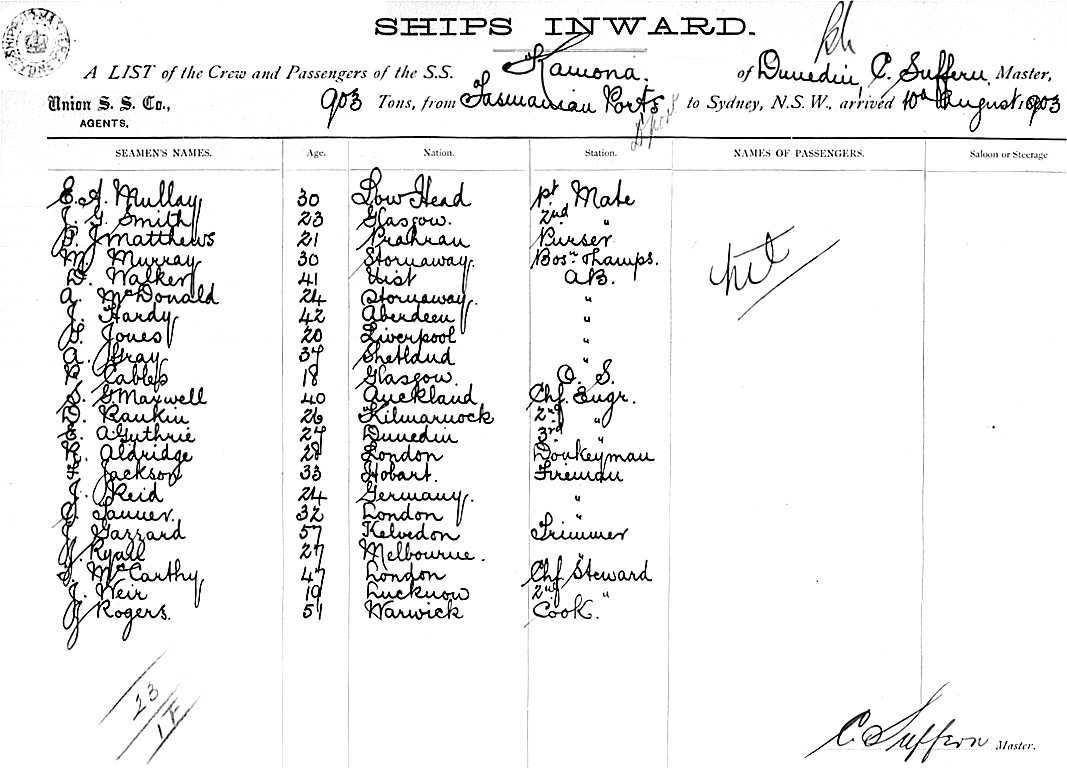 SHIPS INWARD.
A LIST of the Crew and Passengers of the S.S. Kamona. of Dunedin, C. Suffern Master,
Union S. S. Co., 903 Tons, from Tasmanian Ports to Sydney, N.S.W., arrived 10th August 1903
AGENTS.
SEAMEN'S NAMES. Age. Nation. Station. NAMES OF PASSENGERS. Saloon or Steerage
E. A. Mullay 30 Low Head 1st Mate
J. G. Smith 23 Glasgow. 2nd "
J Matthews 21 Prahran Purser
M. Murray 30 Stornaway. Bosn & Lamps.
D. Walker 41 Uist A.B.
A. McDonald 24 Stornaway. "
J. Hardy 42 Aberdeen "
Jones 20 Liverpool "
A. Gray 37 Shetland "
Cables 18 Glasgow. O. S.
S. G Maxwell 40 Auckland Chf. Engr.
D. Rankin 26 Kilmarnock 2nd "
E. A Guthrie 27 Dunedin 3rd "
R. Aldridge 28 London Donkeyman
F. Jackson 33 Hobart. Fireman
J. Reid 24 Germany. "
Tanner. 32 London "
J. Gazzard 57 Kelvedon Trimmer
Ryall 27 Melbourne. "
McCarthy 47 London Chf Steward
J. Weir 19 Lucknow 2nd "
J Rogers. 51 Warwick Cook.
nil
23
C. Suffern Master.